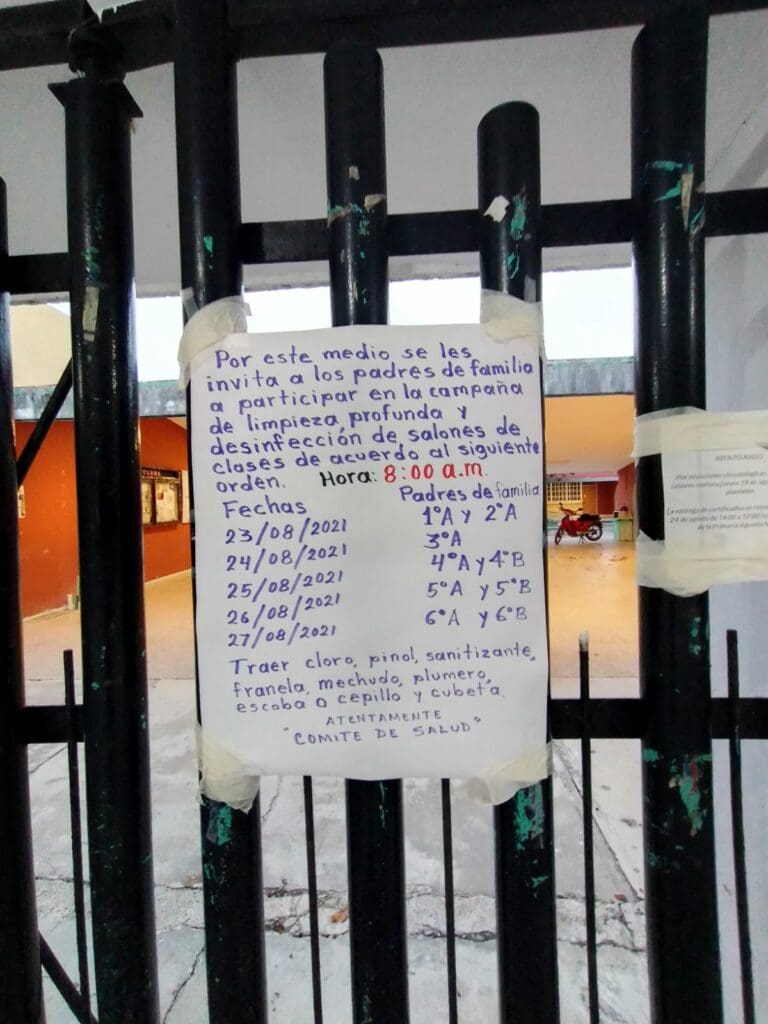 Por este medio se les
invita a los padres de familia
a participar en la campaña
de limpieza profunda y
desinfección de salones de
clases de acuerdo al siguiente
orden. Hora: 8:00 a.m.
Fechas Padres de familia
23/08/2021 1°A y 2°A
24/08/2021 3°A
25/08/2021 4°A y 4°B
26/08/2021 5°A y 5°B
27/08/2021 6°A y 6°B
Traer cloro, pinol, sanitizante,
franela, mechudo, plumero,
escoba o cepillo y cubeta.
ATENTAMENTE
"COMITE DE SALUD"
ATENTO AVISO
Por situaciones climatológicas
Labores mañana jueves 19 de
planteles
La entrega de certificados se
24 de agosto de 14:00 a 17:00
de la Primaria